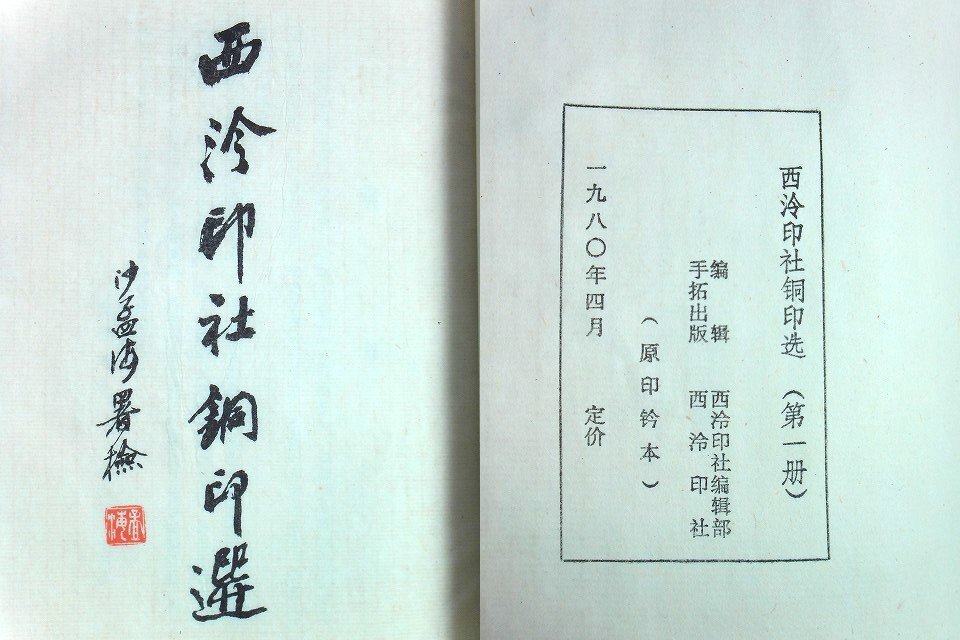 西泠印社銅印選
沙孟海署檢
西泠印社铜印选（第一册）
编辑 西泠印社编辑部
手拓出版 西泠印社
（原印钤本）
一九八〇年四月 定价